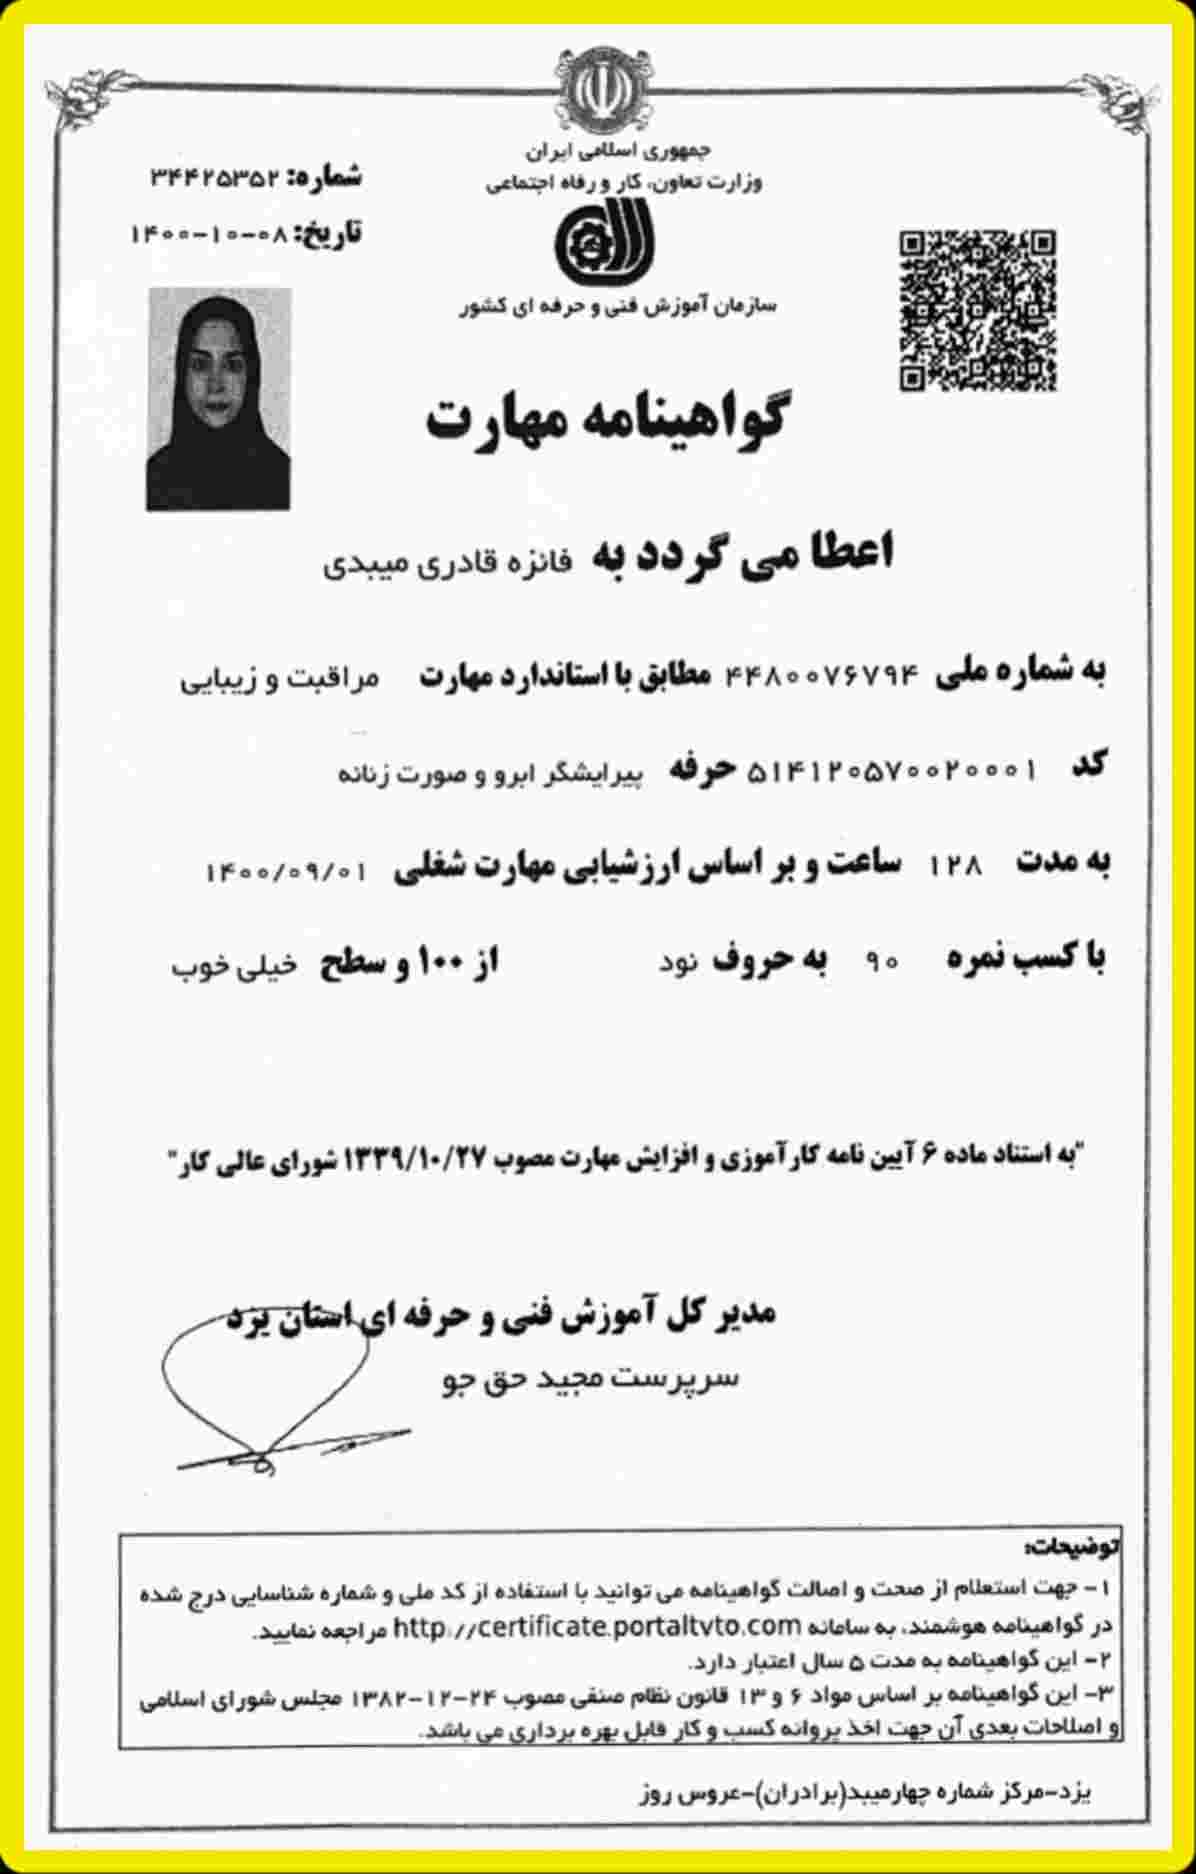 جمهوری اسلامی ایران
وزارت تعاون، کار و رفاه اجتماعی
شماره: ۳۴۴۲۵۳۵۲
تاریخ: ۱۴۰۰-۱۰-۰۸
سازمان آموزش فنی و حرفه ای کشور
گواهینامه مهارت
اعطا می گردد به فائزه قادری میبدی
به شماره ملی ۴۴۸۰۰۷۶۷۹۴ مطابق با استاندارد مهارت مراقبت و زیبایی
کد ۵۱۴۱۲۰۵۷۰۰۲۰۰۰۱ حرفه پیرایشگر ابرو و صورت زنانه
به مدت ۱۲۸ ساعت و بر اساس ارزشیابی مهارت شغلی ۱۴۰۰/۰۹/۰۱
با کسب نمره ۹۰ به حروف نود از ۱۰۰ و سطح خیلی خوب
"به استناد ماده ۶ آیین نامه کارآموزی و افزایش مهارت مصوب ۱۳۳۹/۱۰/۲۷ شورای عالی کار"
مدیر کل آموزش فنی و حرفه ای استان یزد
سرپرست مجید حق جو
توضیحات:
۱- جهت استعلام از صحت و اصالت گواهینامه می توانید با استفاده از کد ملی و شماره شناسایی درج شده
در گواهینامه هوشمند، به سامانه http://certificate.portaltvto.com مراجعه نمایید.
۲- این گواهینامه به مدت ۵ سال اعتبار دارد.
۳- این گواهینامه بر اساس مواد ۶ و ۱۳ قانون نظام صنفی مصوب ۲۴-۱۲-۱۳۸۲ مجلس شورای اسلامی
و اصلاحات بعدی آن جهت اخذ پروانه کسب و کار قابل بهره برداری می باشد.
یزد-مرکز شماره چهارمیبد(برادران)-عروس روز